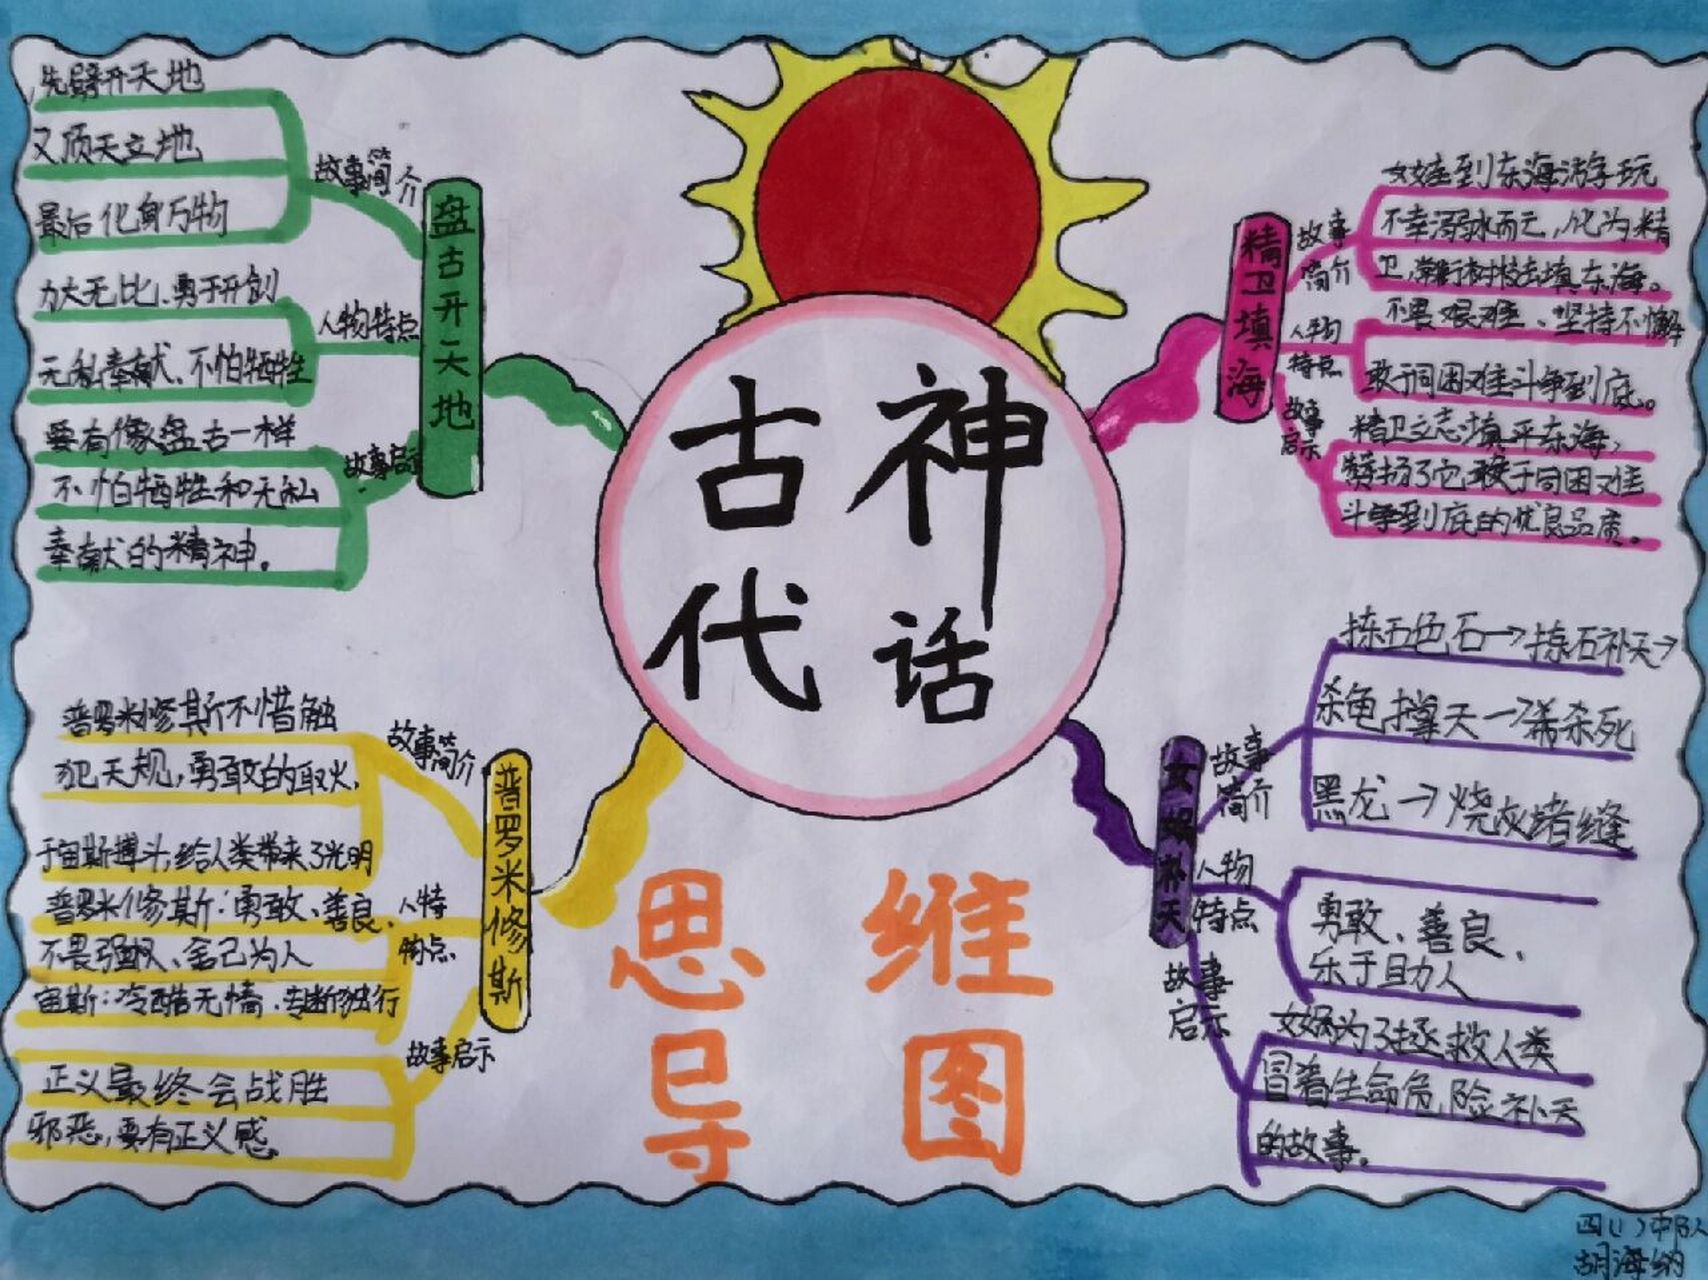 古神
代话
思维
导图
盘古开天地
故事简介
先劈开天地
又顶天立地
最后化身万物
人物特点
力大无比、勇于开创
无私奉献、不怕牺牲
故事启示
要有像盘古一样
不怕牺牲和无私
奉献的精神。
精卫填海
故事
简介
女娃到东海游玩
不幸溺水而亡,化为精
卫,常衔树枝去填东海。
人物
特点
不畏艰难、坚持不懈
敢于同困难斗争到底。
故事
启示
精卫立志填平东海,
赞扬了它敢于同困难
斗争到底的优良品质。
普罗米修斯
故事简介
普罗米修斯不惜触
犯天规,勇敢的取火,
于宙斯搏斗,给人类带来了光明
人特
物点
普罗米修斯:勇敢、善良、
不畏强权、舍己为人
宙斯:冷酷无情、专断独行
故事启示
正义最终会战胜
邪恶,要有正义感
女娲补天
故事
简介
拣五色石→拣石补天→
杀龟撑天→杀死
黑龙→烧灰堵缝
人物
特点
勇敢、善良、
乐于助人
故事
启示
女娲为了拯救人类
冒着生命危险补天
的故事。
四(1)中队
胡海纳